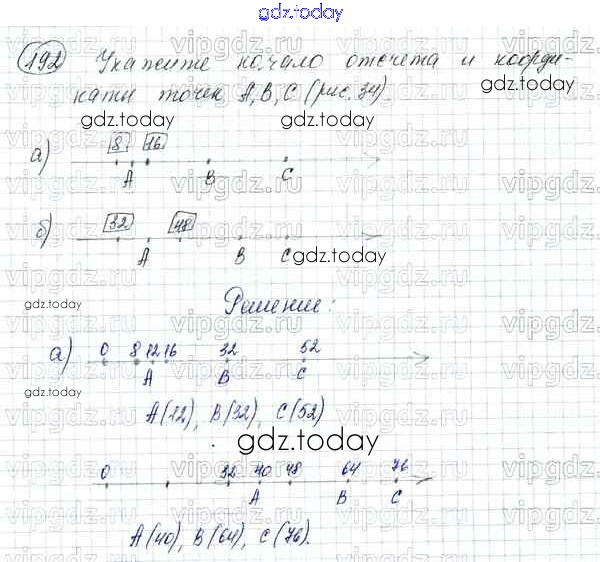 gdz.today
192 Укажите начало отсчета и коорди-
наты точек А, В, С (рис. 34).
gdz.today gdz.today gdz.today
а) 8 16
А В С
б) 32 48
А В С
gdz.today
gdz.today
Решение:
а) 0 8 12 16 32 52
А В С
gdz.today
А(12), В(32), С(52)
gdz.today
0 32 40 48 64 76
А В С
А(40), В(64), С(76).